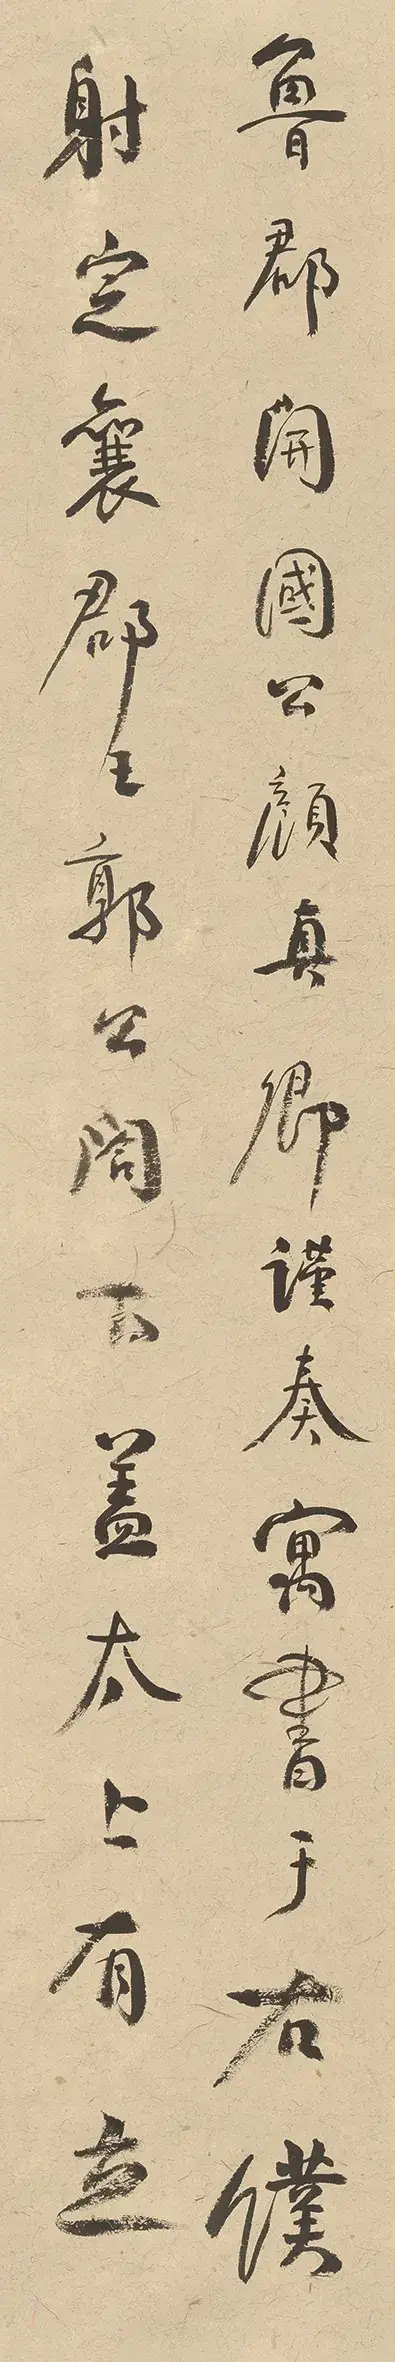 魯郡開國公顏真卿謹奏寓書于右僕
射定襄郡王郭公閤下蓋太上有立